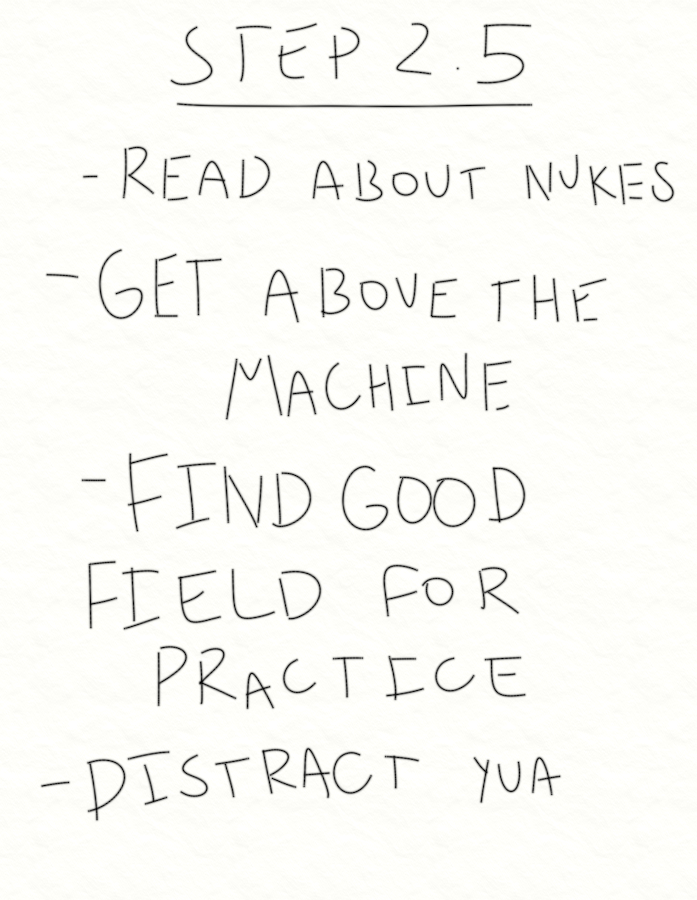 STEP 2.5
- READ ABOUT NUKES
- GET ABOVE THE
MACHINE
- FIND GOOD
FIELD FOR
PRACTICE
- DISTRACT YUA